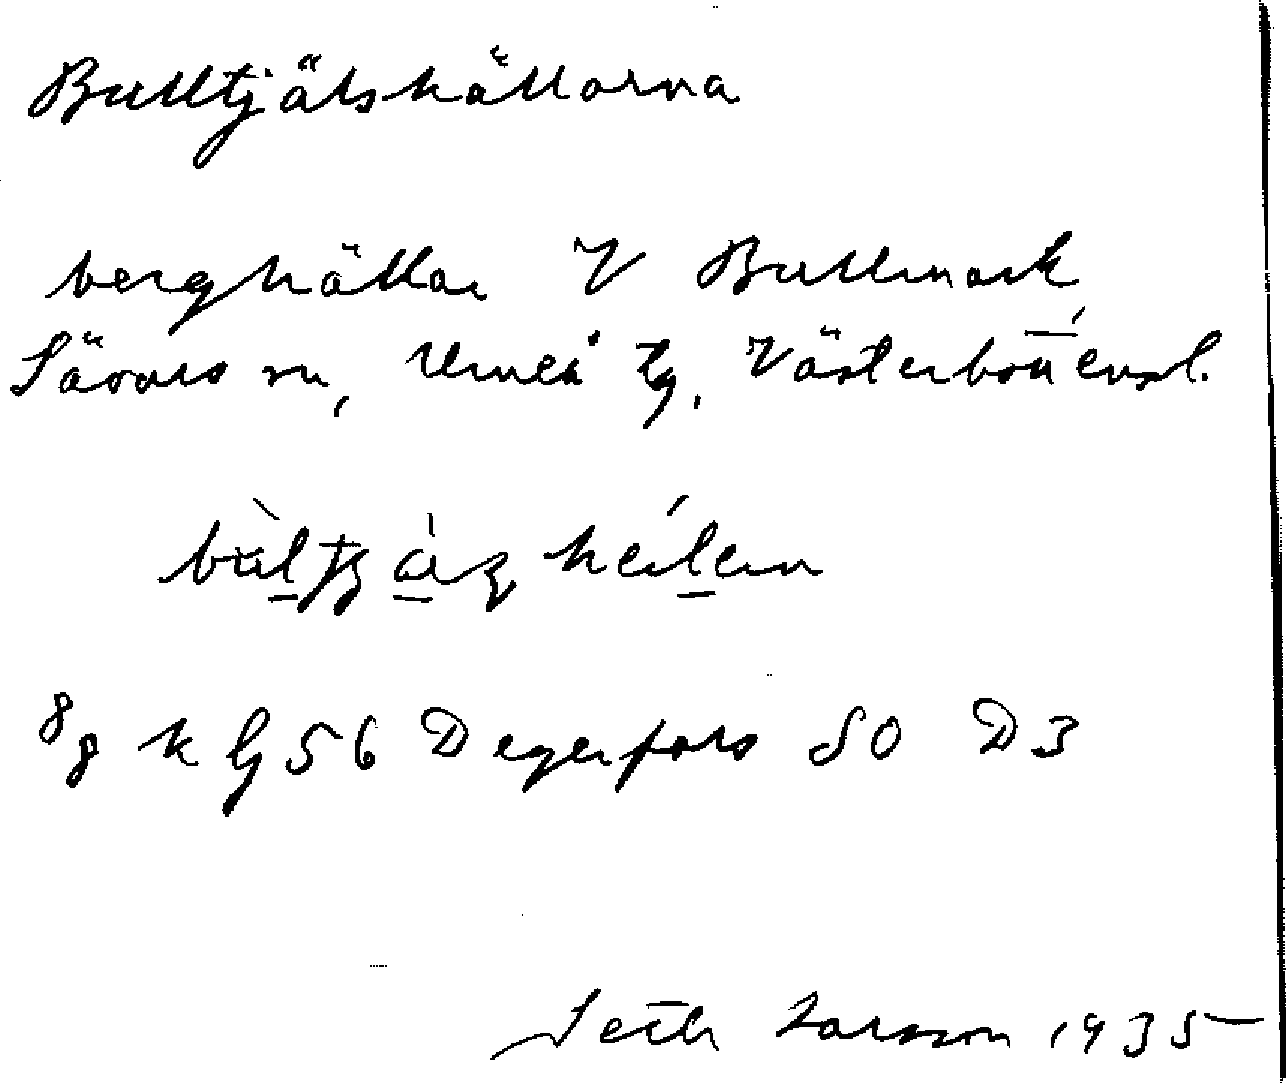 Bulltjälshällorna
berghällar V Bullmark,
Sävars sn, Umeå tg, Västerbottensl.
8/8 k bg 56 Degerfors SO D3
Seth Larsson 1935